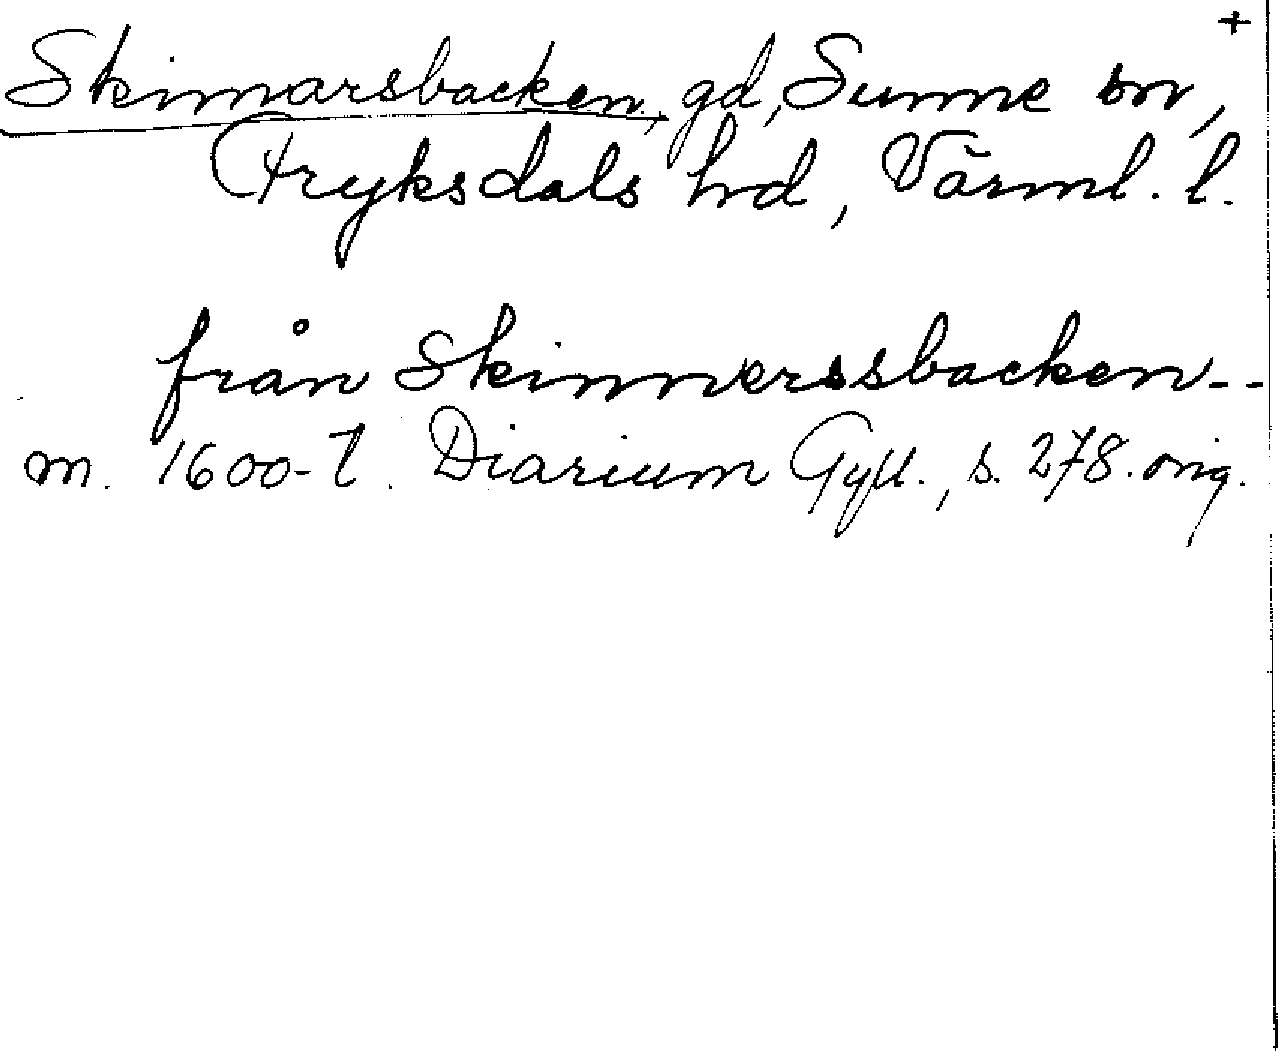 +
Skinnarsbacken, gd, Sunne sn,
Fryksdals hrd, Värml. l.
från Skinnerssbacken--
m. 1600-t. Diarium Gyll., s. 278. orig.